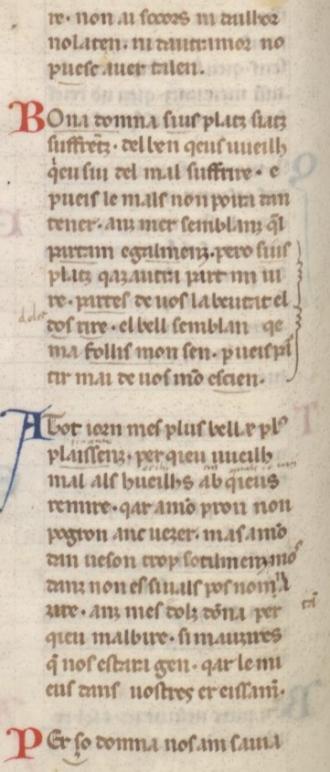 re. non ai socors ni daillor
nolaten. ni dautramor no
puesc auer talen.
BOna domna sius platz siatz
suffretz. del ben qeus uueilh
qeu sui del mal suffrire. e
pueis le mals non poira dan
tener. anz mer semblanz qel
partam egalmenz. pero sius
platz qaz autra part mi ui
re. partes de uos la beutat el
dolz rire. el bell semblan qe
ma follis mon sen. pueis pt
tir mai de uos mon escien.
A tot iorn mes plus bell e pl9
plaissenz. per qeu uueilh
mal als hueilhs ab qieus
remire. qar amon pron non
pogron anc uezer. mas amon
dan ueson trop sotilmenz mo9
danz non es si uals pos nom
zire. anz mes dolz dona per
qieu malbire. si mauzires
q nos estara gen. qar le mi
eus dans uostres er eissamen.
PEr so domna nos am sauia